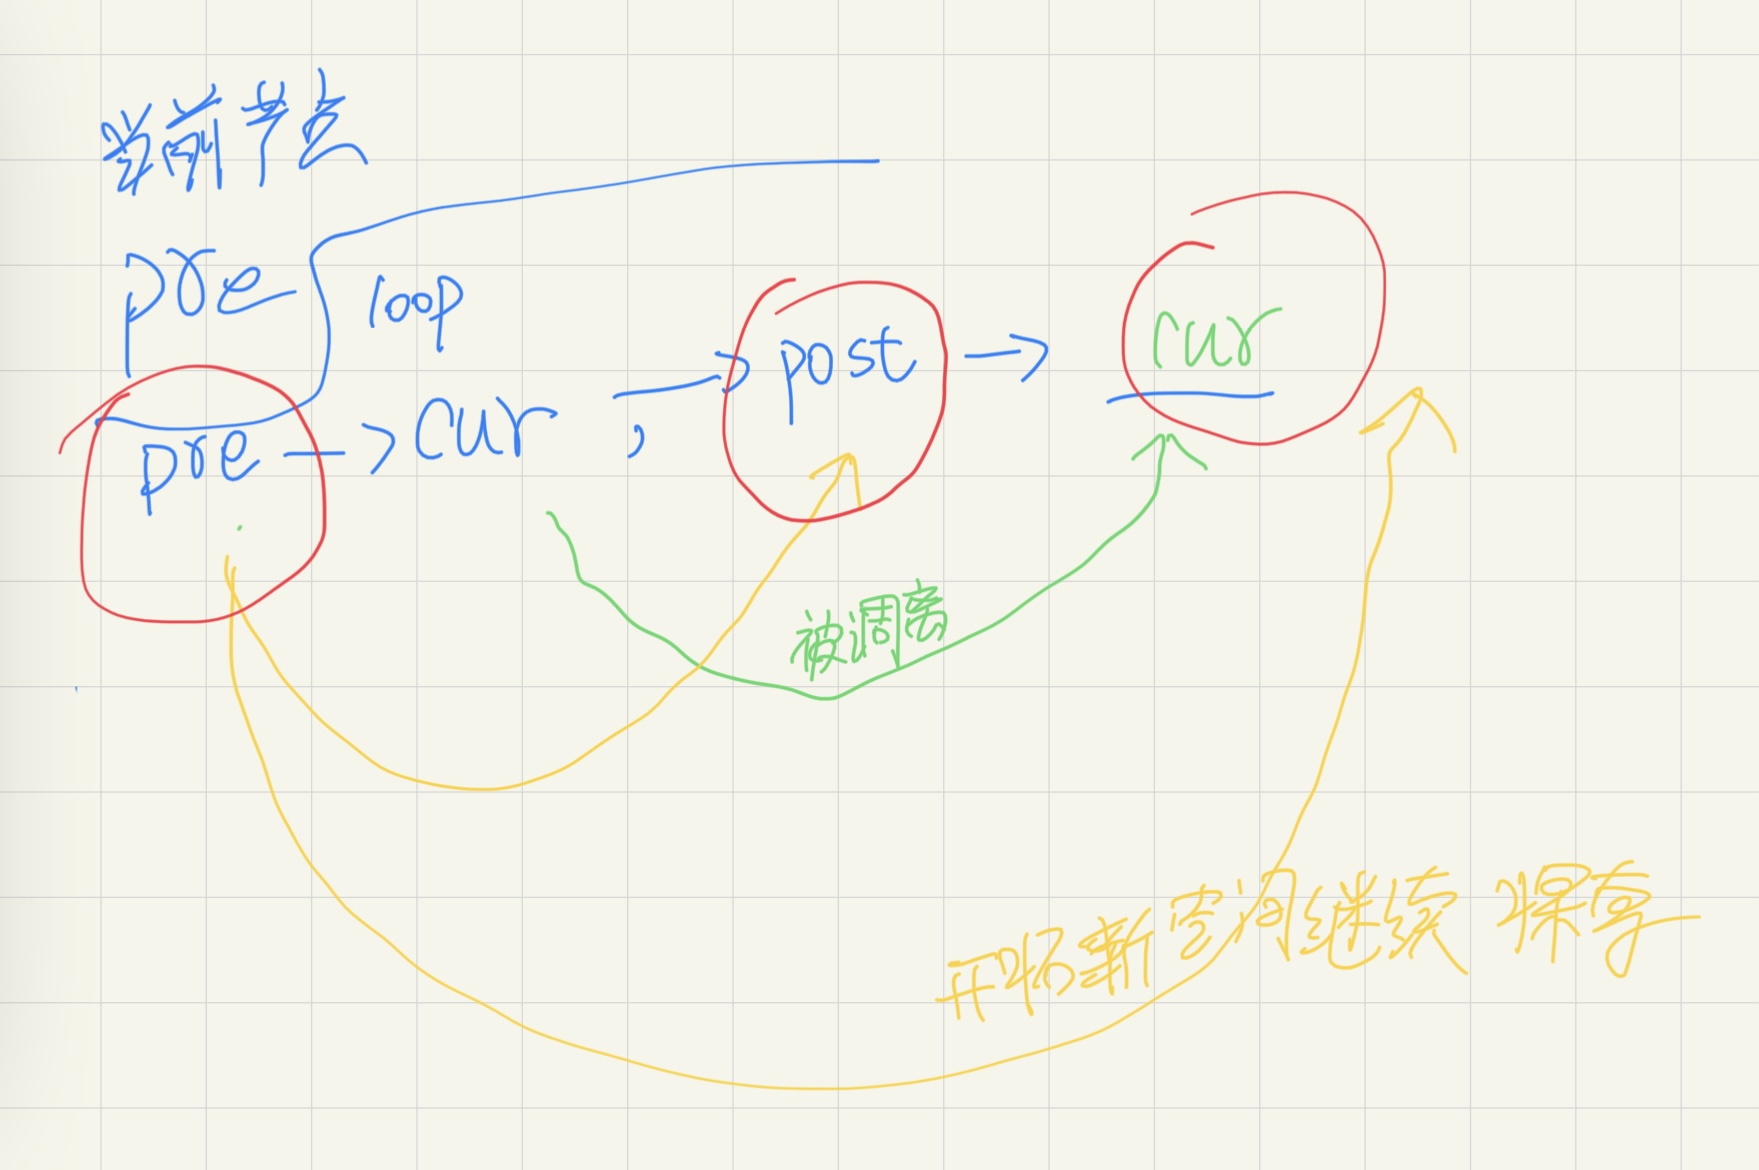 当前节点
pre
loop
pre → cur , → post → cur
被调离
开拓新空间继续探索